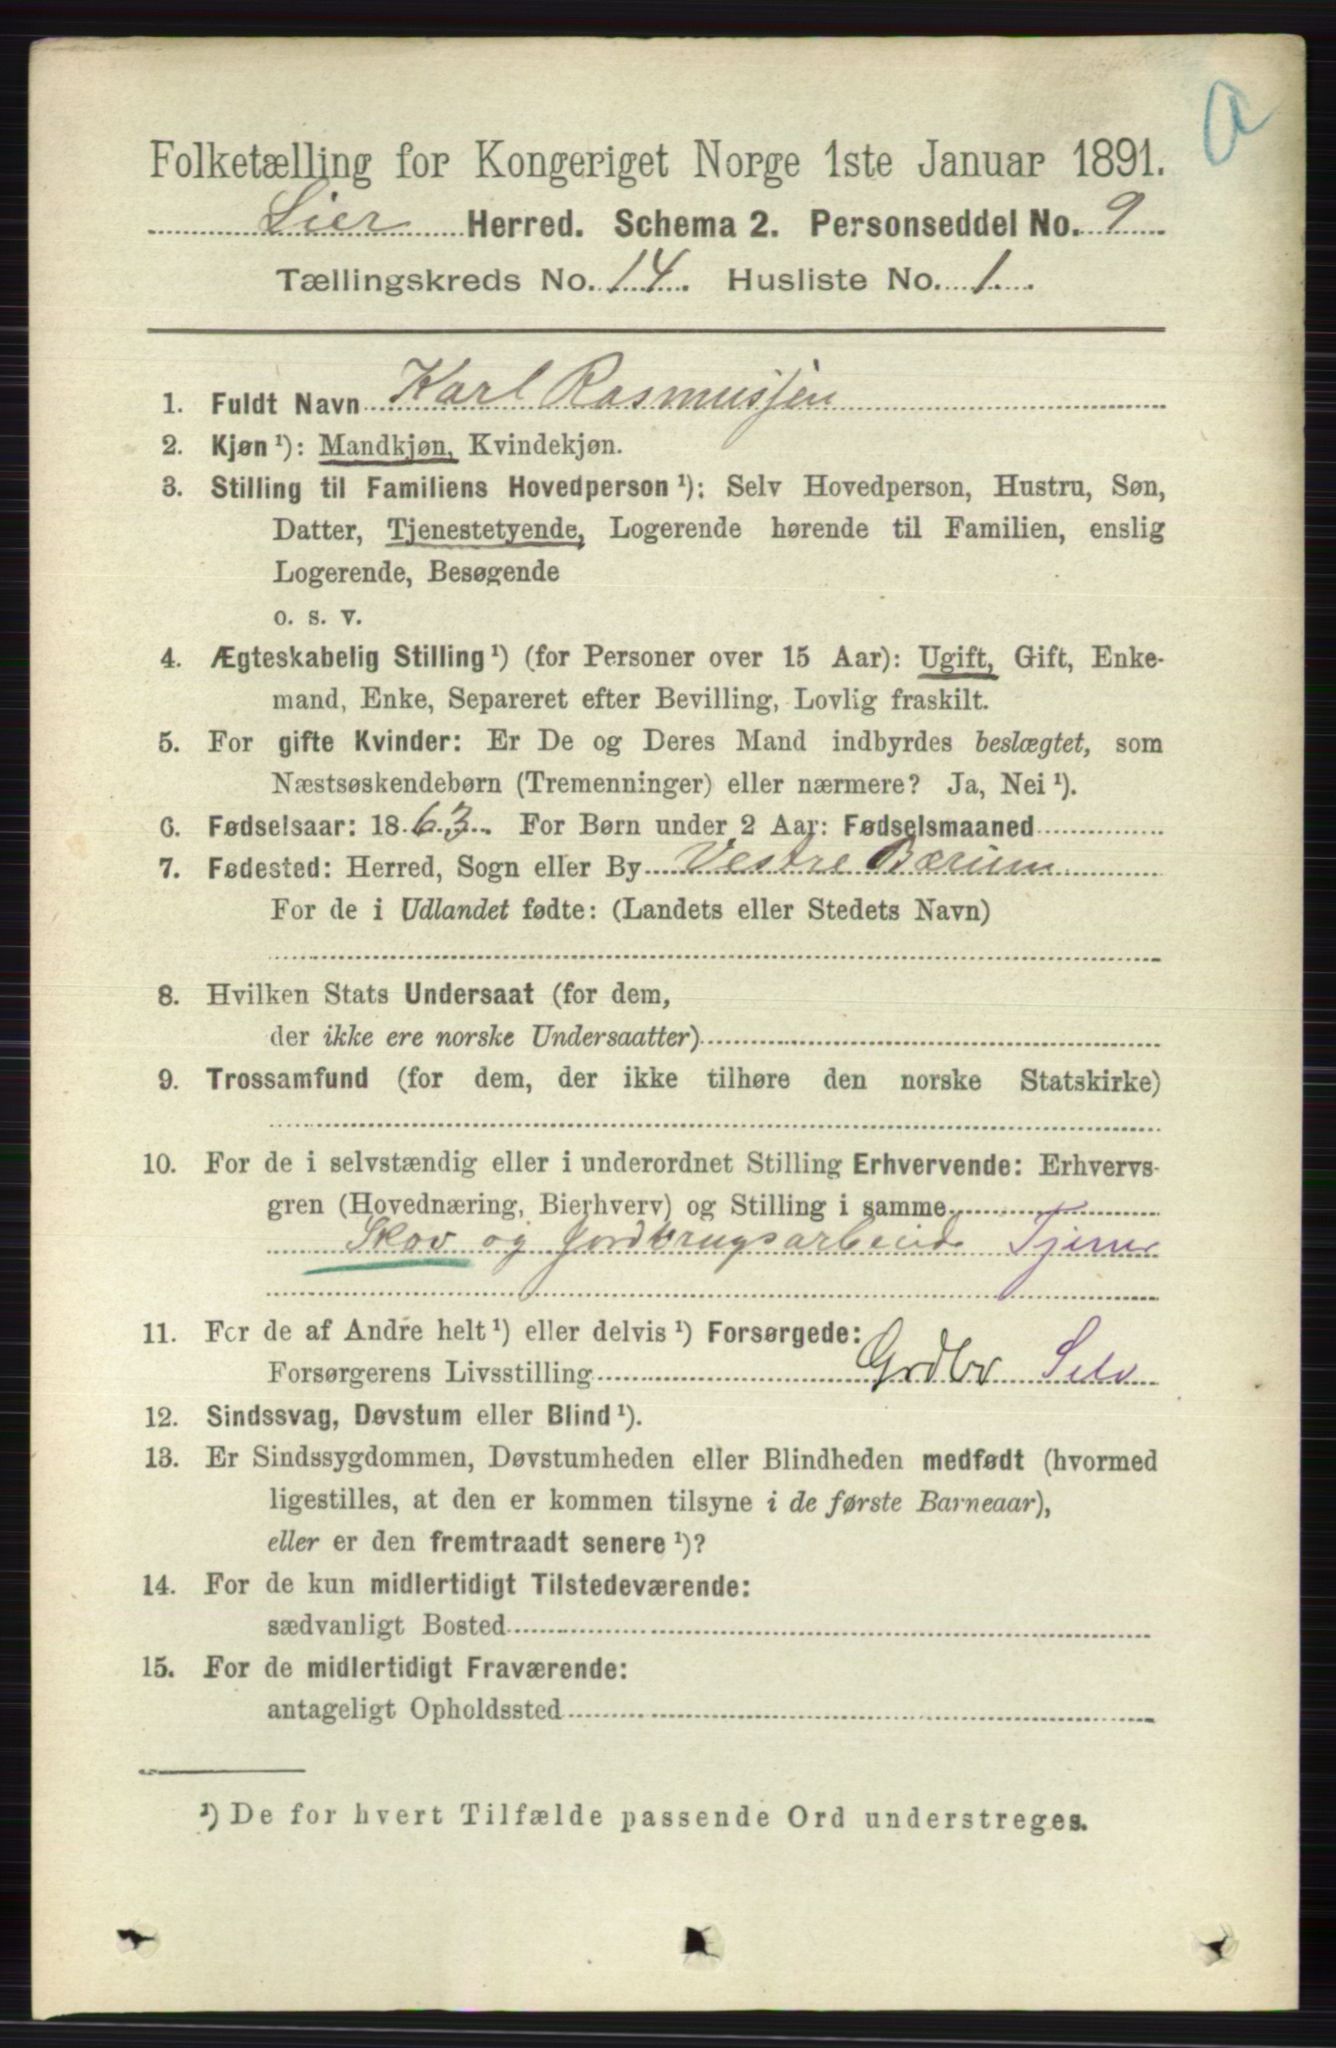 a
Folketælling for Kongeriget Norge 1ste Januar 1891.
Lier Herred. Schema 2. Personseddel No. 9
Tællingskreds No. 14. Husliste No. 1.
1. Fuldt Navn Karl Rasmussen
2. Kjøn ¹): Mandkjøn, Kvindekjøn.
3. Stilling til Familiens Hovedperson ¹): Selv Hovedperson, Hustru, Søn,
Datter, Tjenestetyende, Logerende hørende til Familien, enslig
Logerende, Besøgende
o. s. v.
4. Ægteskabelig Stilling ¹) (for Personer over 15 Aar): Ugift, Gift, Enke-
mand, Enke, Separeret efter Bevilling, Lovlig fraskilt.
5. For gifte Kvinder: Er De og Deres Mand indbyrdes beslægtet, som
Næstsøskendebørn (Tremenninger) eller nærmere? Ja, Nei ¹).
6. Fødselsaar: 1863. For Børn under 2 Aar: Fødselsmaaned
7. Fødested: Herred, Sogn eller By Vestre Bærum
For de i Udlandet fødte: (Landets eller Stedets Navn)
8. Hvilken Stats Undersaat (for dem,
der ikke ere norske Undersaatter)
9. Trossamfund (for dem, der ikke tilhøre den norske Statskirke)
10. For de i selvstændig eller i underordnet Stilling Erhvervende: Erhvervs-
gren (Hovednæring, Bierhverv) og Stilling i samme
Skov og Jordbrugsarbeide Tjener
11. For de af Andre helt ¹) eller delvis ¹) Forsørgede:
Forsørgerens Livsstilling Grdbr Selv
12. Sindssvag, Døvstum eller Blind ¹).
13. Er Sindssygdommen, Døvstumheden eller Blindheden medfødt (hvormed
ligestilles, at den er kommen tilsyne i de første Barneaar),
eller er den fremtraadt senere ¹)?
14. For de kun midlertidigt Tilstedeværende:
sædvanligt Bosted
15. For de midlertidigt Fraværende:
antageligt Opholdssted
¹) De for hvert Tilfælde passende Ord understreges.